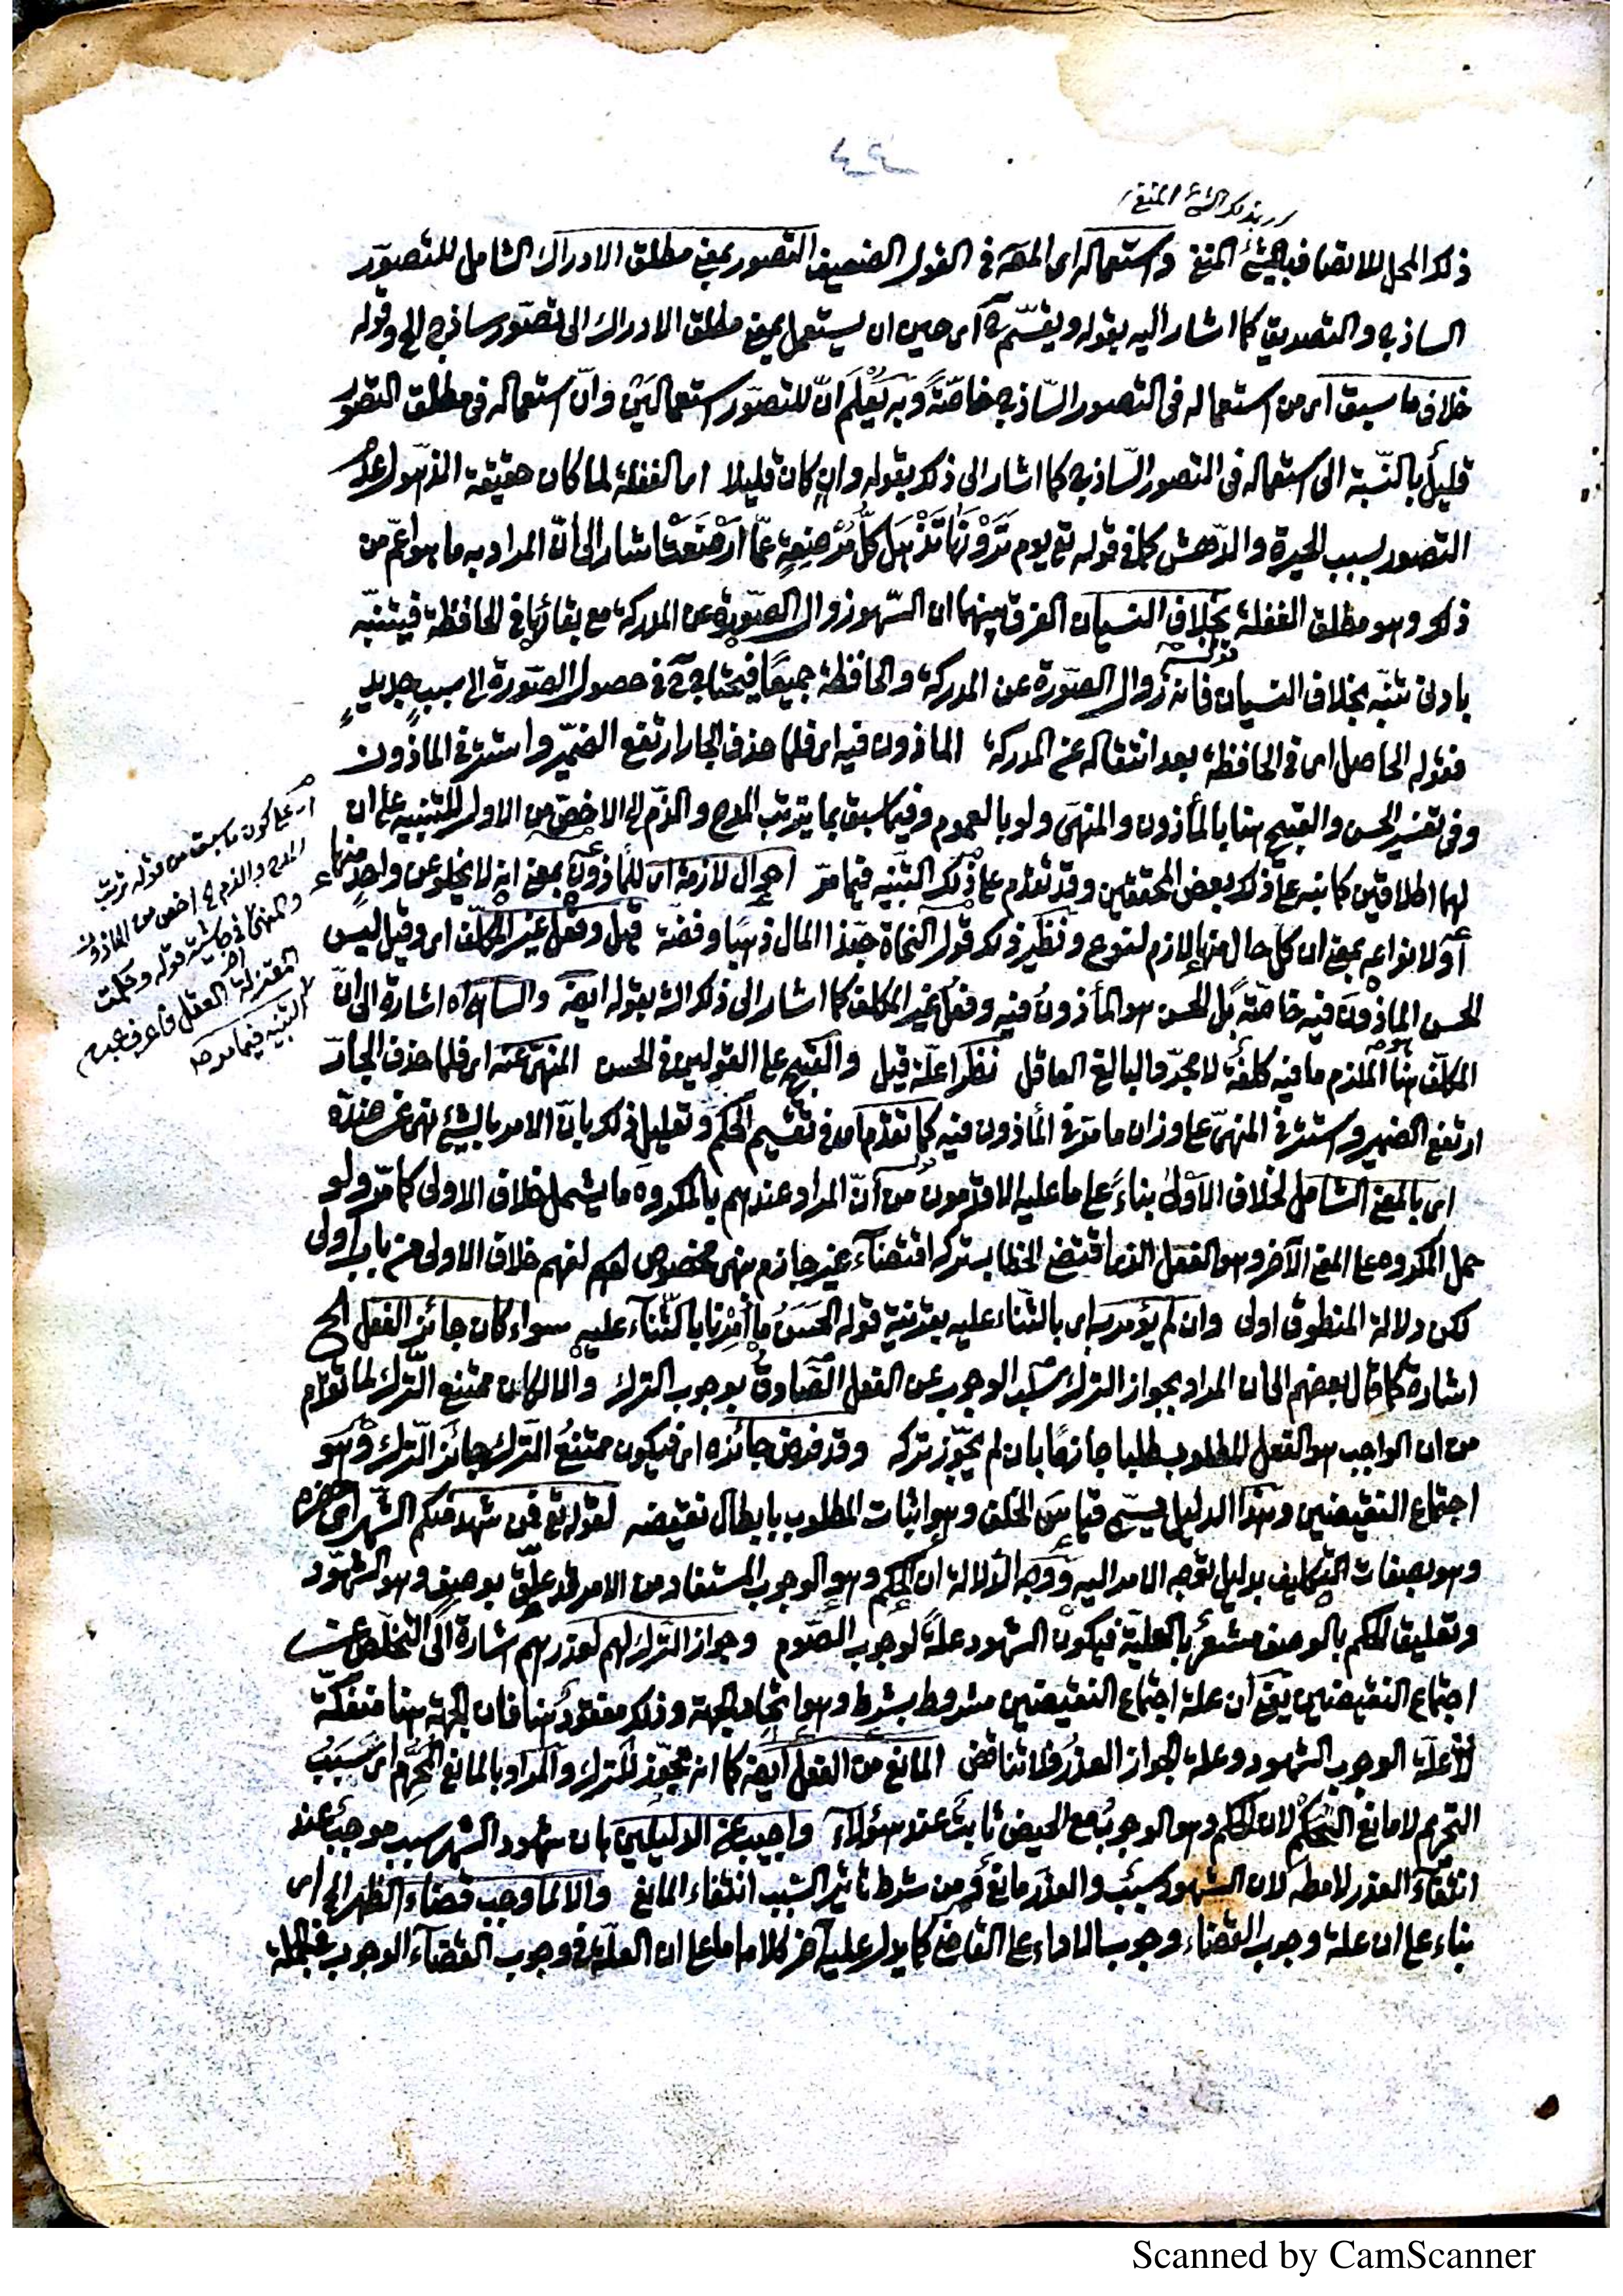 بذلك الشيء المنفي
ذلك المحل للاتصاف بالشيء المنفي واستعماله اى المصه فى القول الضعيف التصور بمعنى مطلق الادراك الشامل للتصوّر
الساذج والتصديق كما اشار اليه بقوله ويقسّم ح اى حين ان يستعمل بمعنى مطلق الادراك الى تصوّر ساذج الخ وقوله
خلاف ما سبق اى من استعماله فى التصور السّاذج خاصّةً وبه يُعْلَم انّ للتصوّر استعمالَيْن وانّ استعماله فى مطلق التصوّر
قليلٌ بالنّسبة الى استعماله فى التصور السّاذج كما اشار الى ذلك بقوله وان كان قليلا اى الغفلة لما كان حقيقة الذهول عدم
التصور بسبب الحيرة والدّهش كما فى قوله تع يوم تَرَوْنَهَا تَذْهَلُ كلُّ مُرْضِعةٍ عمّا اَرْضَعَتْ اشار الى انّ المراد به ما هو اعمّ من
ذلك وهو مطلق الغفلة بخلاف النسيان الفرق بينهما ان السّهو زوال الصّورة عن المدركة مع بقائها فى الحافظة فيتنبّه
بادنى تنبّه بخلاف النسيان فانه زوال الصّورة عن المدركة والحافظة جميعًا فيحتاج ح فى حصول الصّورة الى سببٍ جديدٍ
فقوله الحاصل اى فى الحافظة بعد انتقاله عن المدركة الماذون فيه اى فلما حذف الجار ارتفع الضمير واستتر فى الماذون
وفى تفسير الحسن والقبيح هنا بالمأذون والمنهى ولو بالعموم وفيما سبق بما يترتب المدح والذّم الى الاخصّ من الاول للتنبيه على ان
لهما اطلاقين كما نبه على ذلك بعض المحققين وقد تقدم على ذلك التنبيه فيما مرّ احوال لازمة اى للماذون بمعنى انه لا يخلو عن واحدٍ منها
أو لانواعه بمعنى ان كل حال منها لازم لنوع ونظير ذلك قول النحاة حبّذا المال ذهبًا وفضة قيل وفعل غير المكلّف اى وقيل ليس
الحسن الماذون فيه خاصّةً بل الحسن هو المأذون فيه وفعل غير المكلف كما اشار الى ذلك الش بقوله ايضه والساهى اه اشارة الى انّ
المكلّف هنا الملزم ما فيه كلفة لا مجرّد البالغ العاقل نظرا علّة قيل والقبيح على القولين فى الحسن المنهىّ عنه اى فلما حذف الجارّ
ارتفع الضمير واستتر فى المنهىّ على وزان ما مرّ فى المأذون فيه كما تقدّم اى فى تقسيم الحكم وتعليل ذلك بانّ الامر بالشيء نهى عن ضدّه
اى بالمعنى الشامل لخلاف الاَوْلى بناءً على ما عليه الاقدمون من أنّ المراد عندهم بالمكروه ما يشمل خلاف الاولى كما مرّ ولو
حمل المكروه على المعنى الآخر وهو الفعل الذى اقتضى الخطاب تركه اقتضاء غير جازم بنهى مخصوص لفهم خلاف الاولى من باب اولى
لكن دلالة المنطوق اولى وان لم يؤمر به اى بالثناء عليه بقرينة قوله الحَسَنُ ما اُمِرْنا بالثّناء عليه سواء كان جائز الفعل الخ
اشارة كما قال بعضهم الى ان المراد بجواز الترك سلب الوجوب عن الفعل الصّادق بوجوب الترك والا لكان ممتنع التّرك لما تقدّم
من ان الواجب هو الفعل المطلوب طلبا جازمًا بان لم يجوّز تركه وقد فرض جائزه اى فيكون ممتنعُ التّرك جائزَ التّرك وهو
اجتماع النقيضين وهذا الدليل يسمّى قياس الخلف وهو اثبات المطلوب بابطال نقيضه لقوله تع فمن شهد منكم الشّهر اى حضره
وهو بصفات التكليف بدليل توجه الامر اليه ووجه الدّلالة ان الحكم وهو الوجوب المستفاد من الامر قد عُلّق بوصفٍ وهو الشهود
وتعليق الحكم بالوصف مشعرٌ بالعليّة فيكون الشهود علةً لوجوب الصّوم وجواز التّرك لهم لعذرهم اشارة الى التخلّص عن
اجتماع النقيضين يعنى ان علة اجتماع النقيضين مشروط بشرط وهو اتّحاد الجهة وذلك مفقودٌ هنا فان الجهة هنا منفكّة
لأنّ علّة الوجوب الشهود وعلة الجواز العذر فلا تناقض المانع من الفعل ايضه كما انه مجوّز للترك والمراد بالمانع المحرِّم اى سَبَبُ
التحريم لا مانع الحكم لان الحكم وهو الوجوبُ مع الحيض ثابتٌ عند هؤلاء واجيب عن الدليلين بان شهود الشهر سبب موجبٌ عند
انتفاء العذر لا مطلقا لان الشهود سببٌ والعذر مانعٌ ومن شرط تأثير السّبب انتفاء المانع والا لما وجب قضاء الظهر الخ اى
بناء على ان علة وجوب القضاء وجوب الاداء على القاضى كما يدل عليه آخر كلامه لا على ان العلّة فى وجوب القضاء الوجوب فى الجملة
اى على كون ما سبق من قوله ترتب
المدح والذم الى اخص من الماذون
والمنهى فى حاشية قوله وحكمت
المعتزلة العقل فاعرف
التنبيه فيما مر منه
Scanned by CamScanner